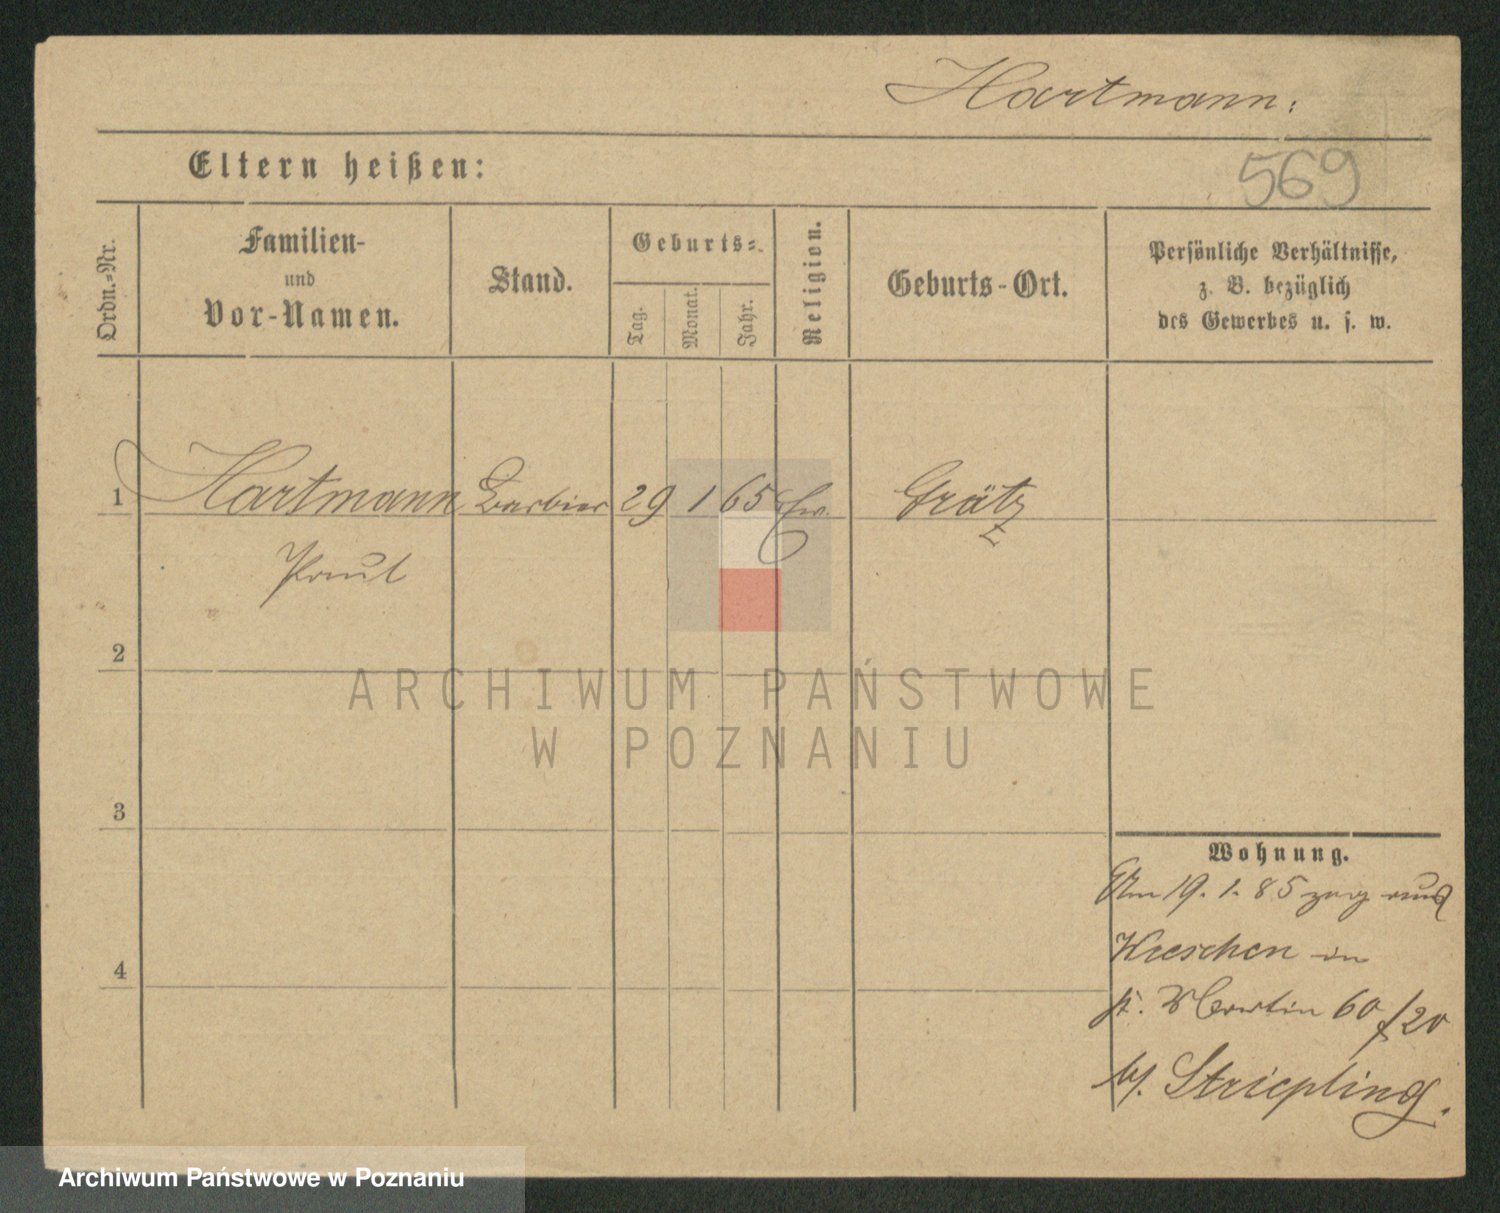 Hartmann.
Eltern heißen:
569
Ordn.-Nr.
Familien-
und
Vor-Namen.
Stand.
Geburts-
Tag.
Monat.
Jahr.
Religion.
Geburts-Ort.
Persönliche Verhältnisse,
z. B. bezüglich
des Gewerbes u. s. w.
1 Hartmann Barbier 29 1 65 Ev. Grätz
Paul
2
ARCHIWUM PAŃSTWOWE
W POZNANIU
3
Wohnung.
Am 19. 1. 85 zog aus
in
4
St. Martin 60/20
bei Striepling.
Archiwum Państwowe w Poznaniu